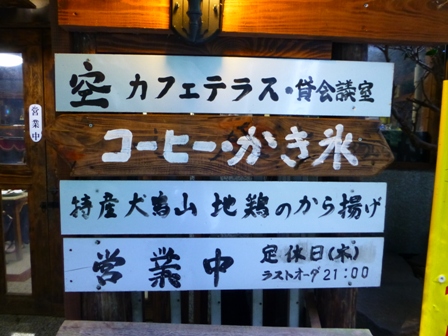 空 カフェテラス・貸会議室
コーヒー・かき氷
特産犬鳴山 地鶏のから揚げ
営業中 定休日(木)
ラストオーダ21:00
営業中